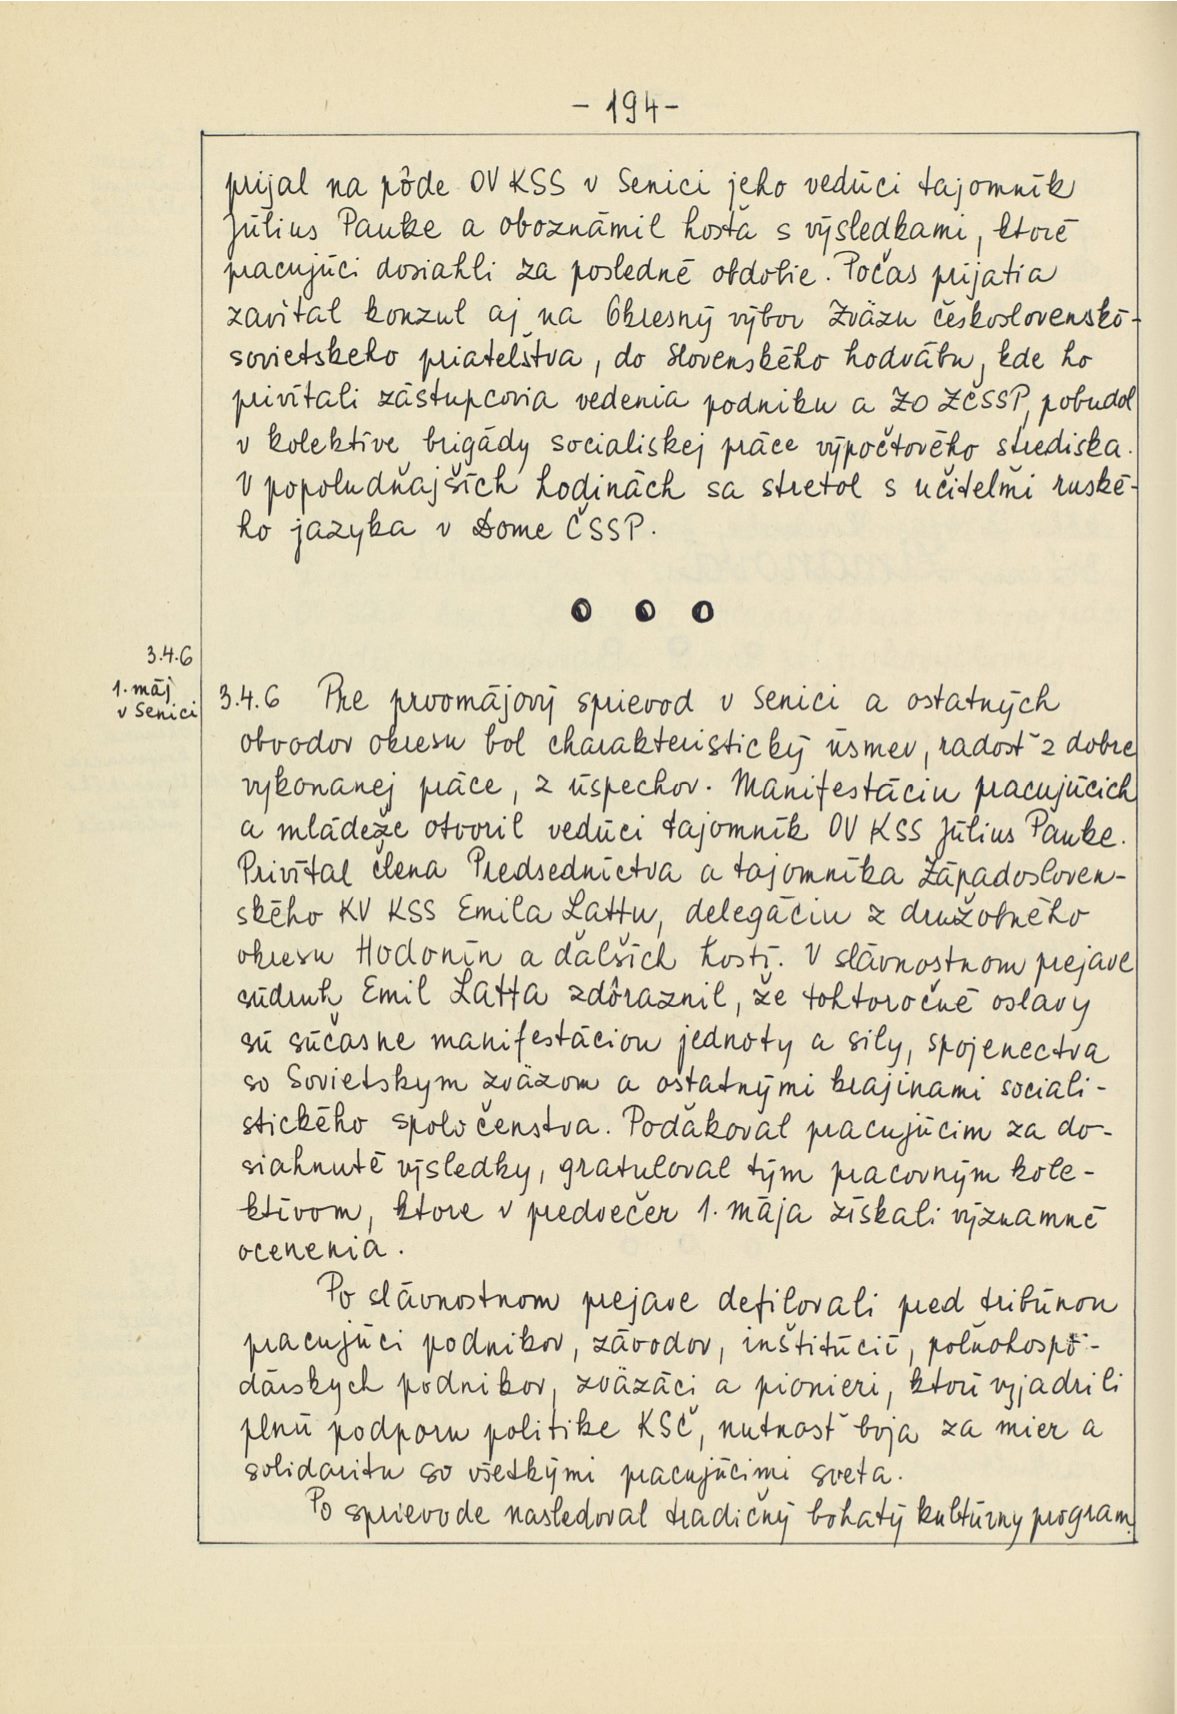 - 194 -
prijal na pôde OV KSS v Senici jeho vedúci tajomník
Július Pauke a oboznámil hosťa s výsledkami, ktoré
pracujúci dosiahli za posledné obdobie. Počas prijatia
zavítal konzul aj na Okresný výbor Zväzu československo-
sovietskeho priateľstva, do Slovenského hodvábu, kde ho
privítali zástupcovia vedenia podniku a ZO ZČSSP, pobudol
v kolektíve brigády socialiskej práce výpočtového strediska.
V popoludňajších hodinách sa stretol s učiteľmi ruské-
ho jazyka v Dome ČSSP.
3.4.6
1. máj
v Senici
3.4.6 Pre prvomájový sprievod v Senici a ostatných
obvodov okresu bol charakteristický úsmev, radosť z dobre
vykonanej práce, z úspechov. Manifestáciu pracujúcich
a mládeže otvoril vedúci tajomník OV KSS Július Pauke.
Privítal člena Predsedníctva a tajomníka Západosloven-
ského KV KSS Emila Lattu, delegáciu z družobného
okresu Hodonín a ďalších hostí. V slávnostnom prejave
súdruh Emil Latta zdôraznil, že tohtoročné oslavy
sú súčasne manifestáciou jednoty a sily, spojenectva
so Sovietskym zväzom a ostatnými krajinami sociali-
stického spoločenstva. Poďakoval pracujúcim za do-
siahnuté výsledky, gratuloval tým pracovným kole-
ktívom, ktore v predvečer 1. mája získali významné
ocenenia.
Po slávnostnom prejave defilovali pred tribúnou
pracujúci podnikov, závodov, inštitúcií, poľnohospo-
dárskych podnikov, zväzáci a pionieri, ktorí vyjadrili
plnú podporu politike KSČ, nutnosť boja za mier a
solidaritu so všetkými pracujúcimi sveta.
Po sprievode nasledoval tradičný bohatý kultúrny program.